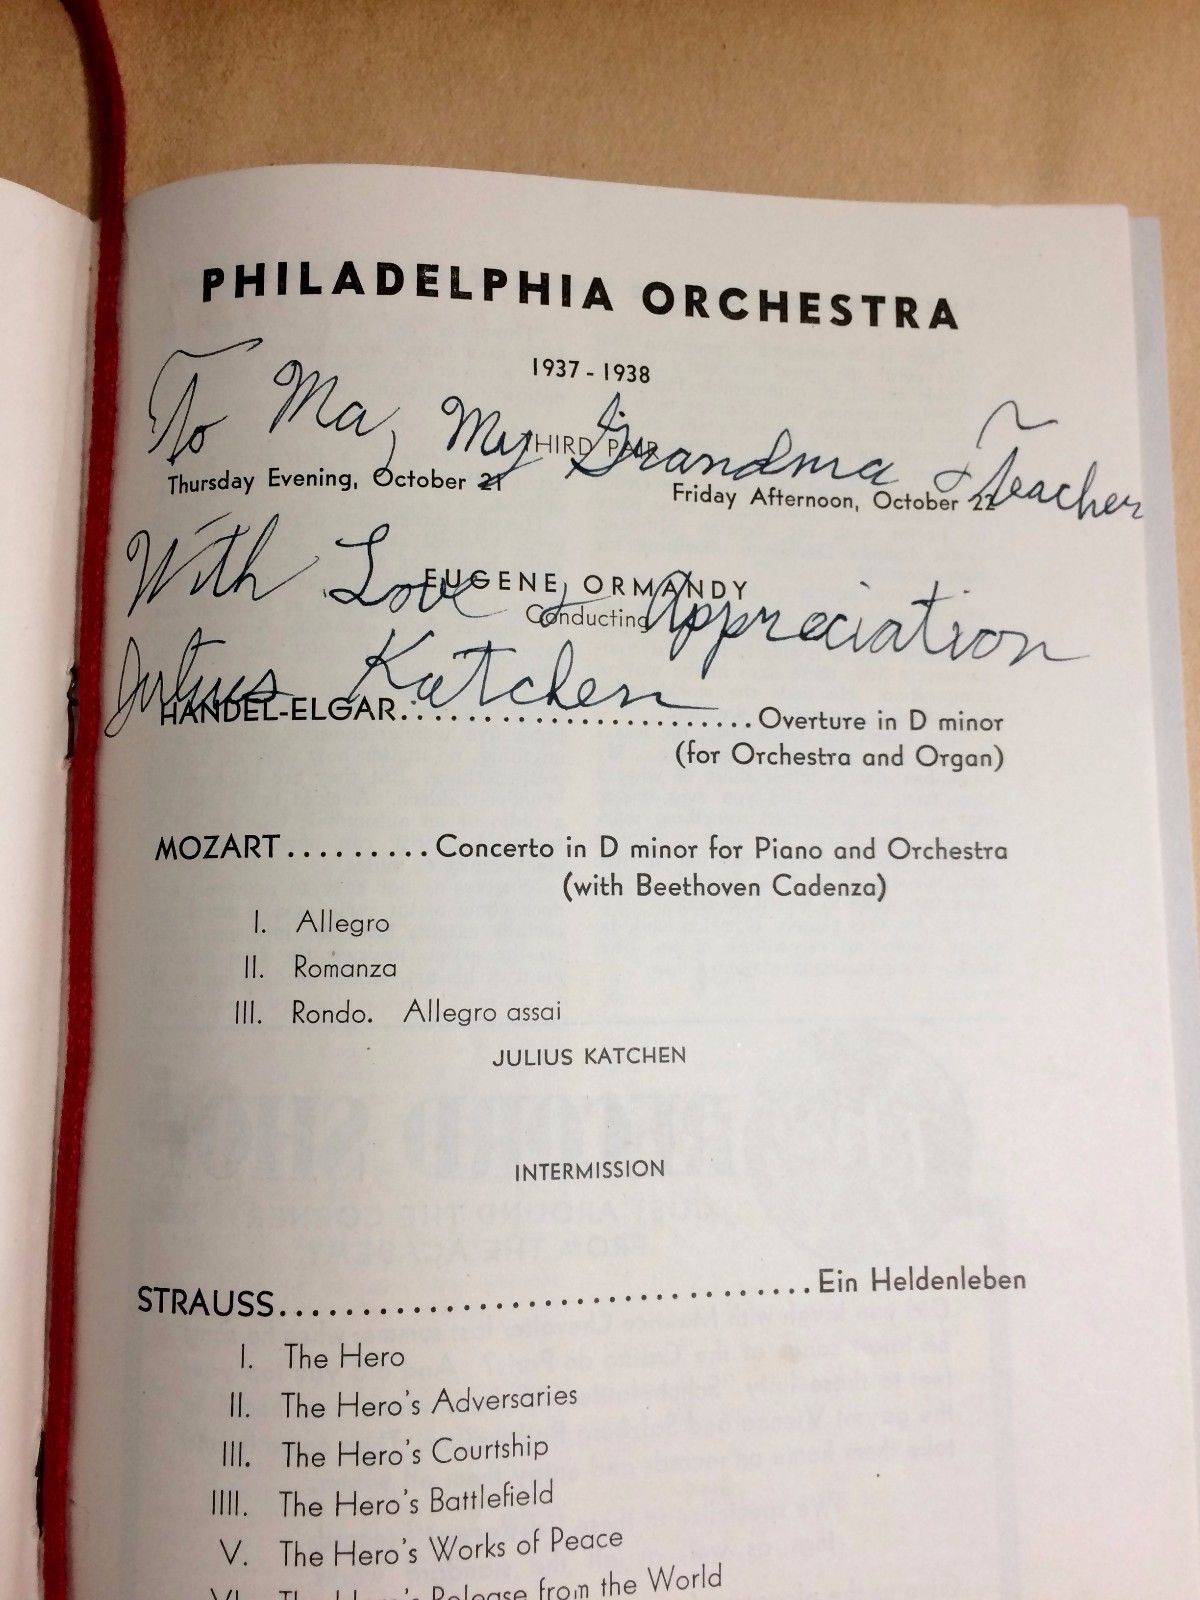 PHILADELPHIA ORCHESTRA
1937 - 1938
To Ma, My Grandma & Teacher
THIRD PAIR
Thursday Evening, October 21
Friday Afternoon, October 22
With Love & Appreciation
EUGENE ORMANDY
Conducting
Julius Katchen
HANDEL-ELGAR..........................Overture in D minor
(for Orchestra and Organ)
MOZART.........Concerto in D minor for Piano and Orchestra
(with Beethoven Cadenza)
I. Allegro
II. Romanza
III. Rondo. Allegro assai
JULIUS KATCHEN
INTERMISSION
STRAUSS.................................Ein Heldenleben
I. The Hero
II. The Hero's Adversaries
III. The Hero's Courtship
IIII. The Hero's Battlefield
V. The Hero's Works of Peace
VI. The Hero's Release from the World